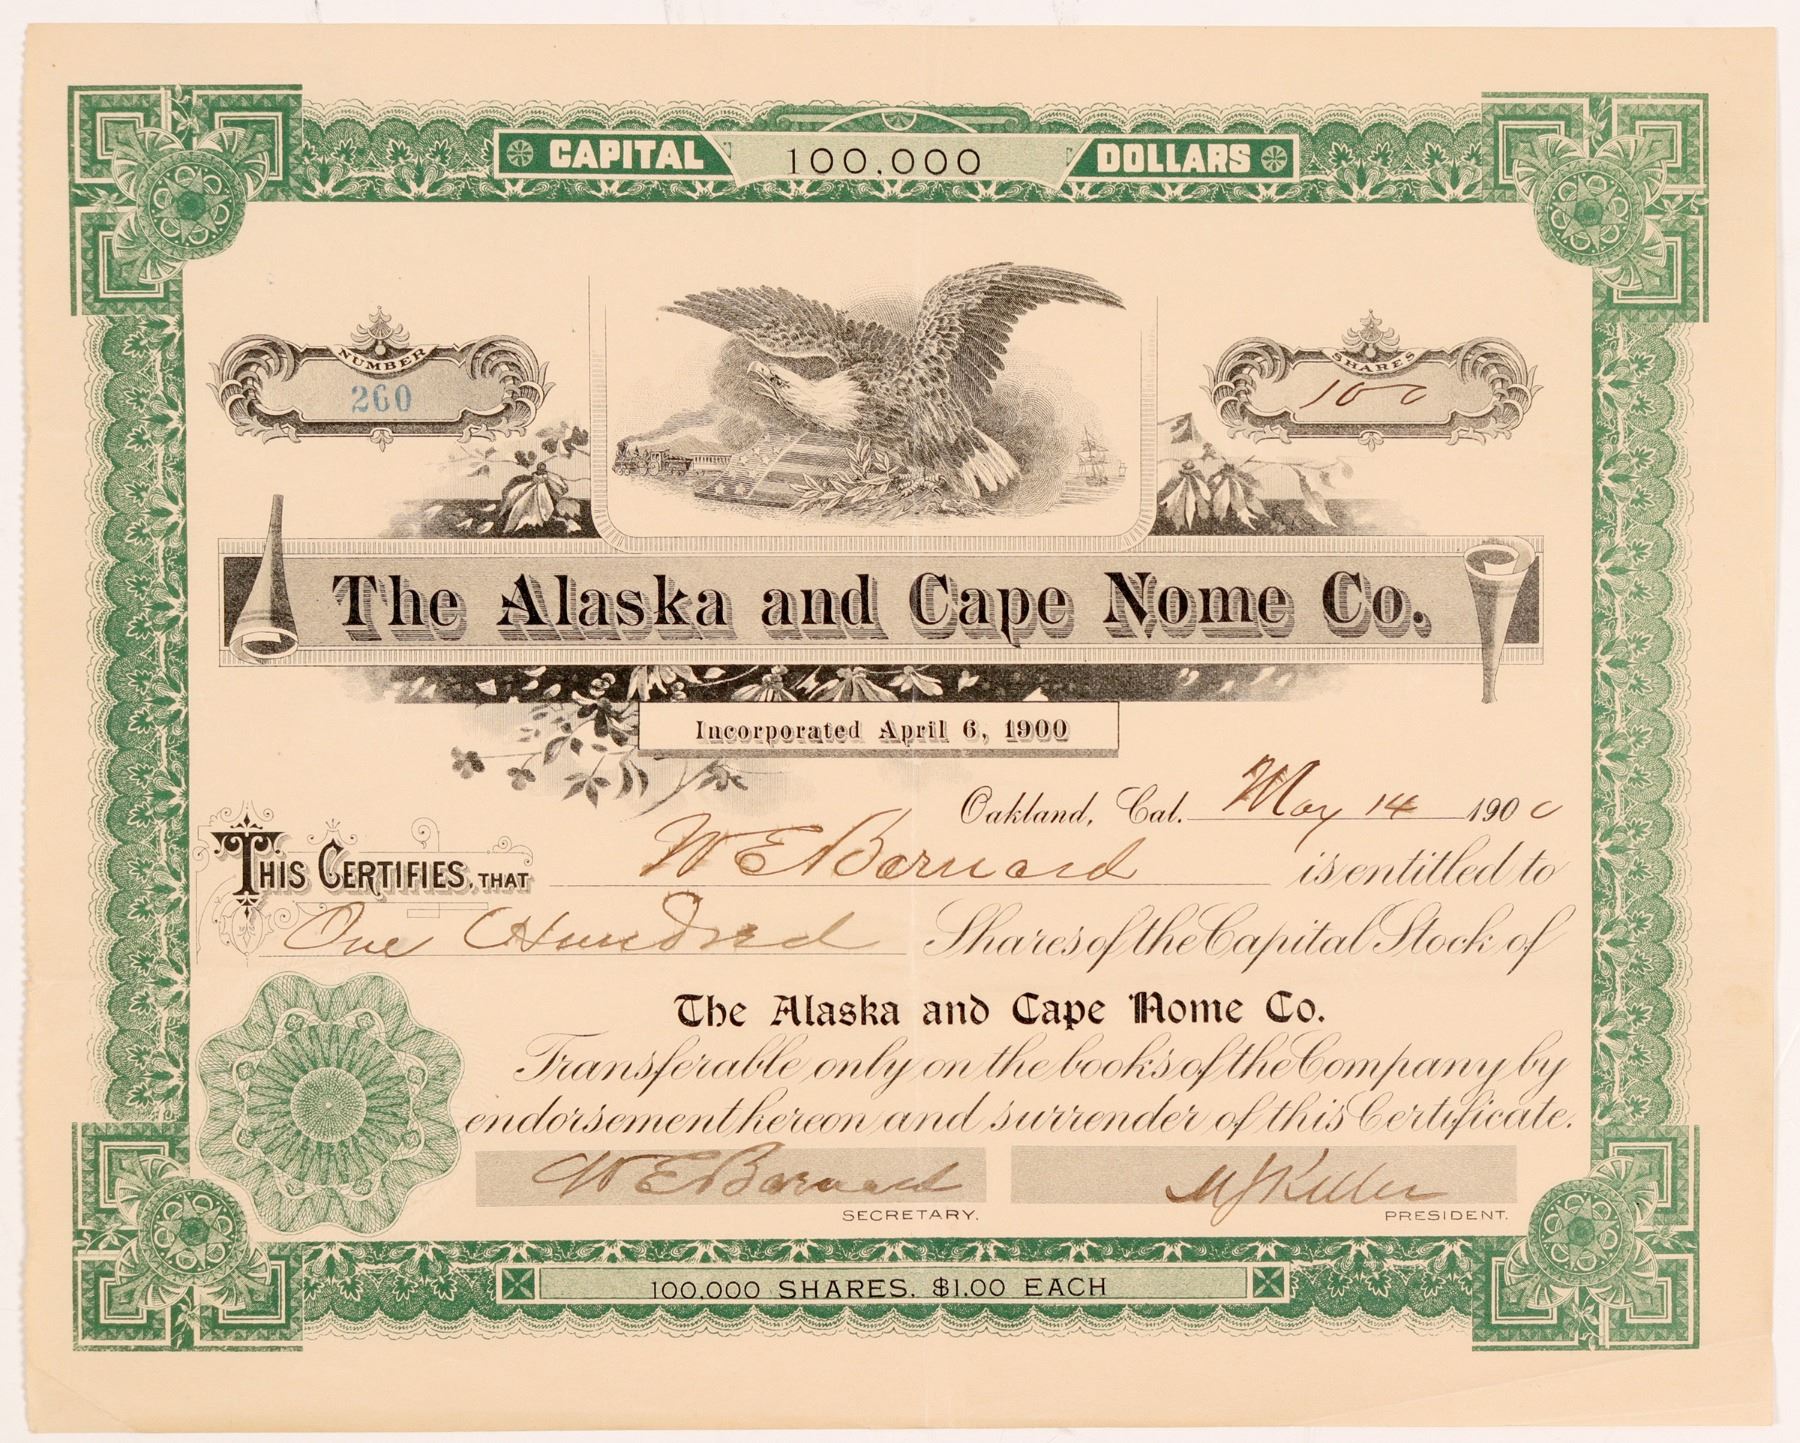 CAPITAL 100,000 DOLLARS
NUMBER
260
SHARES
100
The Alaska and Cape Nome Co.
Incorporated April 6, 1900
Oakland, Cal. May 14 1900
THIS CERTIFIES, THAT W E Barnard is entitled to
One Hundred Shares of the Capital Stock of
The Alaska and Cape Nome Co.
Transferable only on the books of the Company by
endorsement hereon and surrender of this Certificate.
W E Barnard M J Keller
SECRETARY. PRESIDENT.
100,000 SHARES. $1.00 EACH